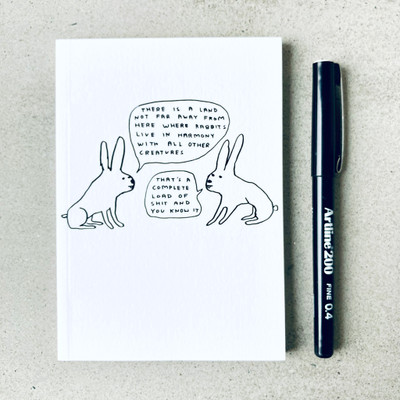 THERE IS A LAND
NOT FAR AWAY FROM
HERE WHERE RABBITS
LIVE IN HARMONY
WITH ALL OTHER
CREATURES
THAT'S A
COMPLETE
LOAD OF
SHIT AND
YOU KNOW IT
Artline 200
FINE 0.4